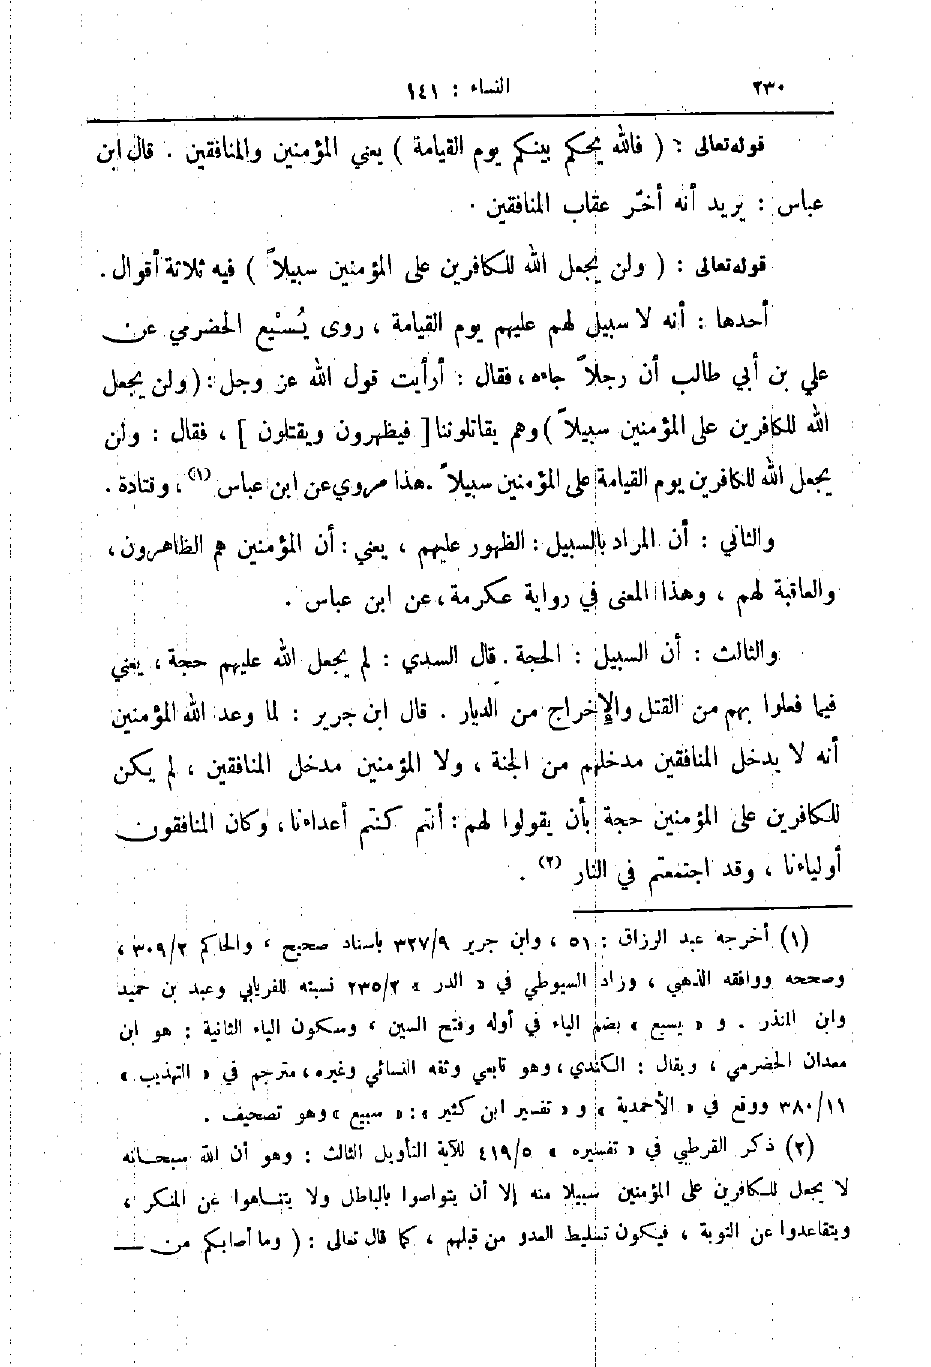 ٢٣٠ النساء : ١٤١
قوله تعالى : ( فالله يحكم بينكم يوم القيامة ) يعني المؤمنين والمنافقين . قال ابن
عباس : يريد أنه أخّر عقاب المنافقين .
قوله تعالى : ( ولن يجعل الله للكافرين على المؤمنين سبيلاً ) فيه ثلاثة أقوال .
أحدها : أنه لا سبيل لهم عليهم يوم القيامة ، روى يُسَيْع الحضرمي عن
علي بن أبي طالب أن رجلاً جاءه ، فقال : أرأيت قول الله عز وجل : ( ولن يجعل
الله للكافرين على المؤمنين سبيلاً ) وهم يقاتلوننا [ فيظهرون ويقتلون ] ، فقال : ولن
يجعل الله للكافرين يوم القيامة على المؤمنين سبيلاً . هذا مروي عن ابن عباس (١) ، وقتادة .
والثاني : أن المراد بالسبيل : الظهور عليهم ، يعني : أن المؤمنين هم الظاهرون ،
والعاقبة لهم ، وهذا المعنى في رواية عكرمة ، عن ابن عباس .
والثالث : أن السبيل : الحجة . قال السدي : لم يجعل الله عليهم حجة ، يعني
فيما فعلوا بهم من القتل والإخراج من الديار . قال ابن جرير : لما وعد الله المؤمنين
أنه لا يدخل المنافقين مدخلهم من الجنة ، ولا المؤمنين مدخل المنافقين ، لم يكن
للكافرين على المؤمنين حجة بأن يقولوا لهم : أنتم كنتم أعداءنا ، وكان المنافقون
أولياءنا ، وقد اجتمعتم في النار (٢) .
(١) أخرجه عبد الرزاق : ٥١ ، وابن جرير ٣٢٧/٩ باسناد صحيح ، والحاكم ٣٠٩/٢ ،
وصححه ووافقه الذهبي ، وزاد السيوطي في « الدر » ٢٣٥/٢ نسبته للفريابي وعبد بن حميد
وابن المنذر . و « يسيع » بضم الياء في أوله وفتح السين ، وسكون الياء الثانية : هو ابن
معدان الحضرمي ، ويقال : الكندي ، وهو تابعي وثقه النسائي وغيره ، مترجم في « التهذيب »
٣٨٠/١١ ووقع في « الأحمدية » و « تفسير ابن كثير » : « سبيع » وهو تصحيف .
(٢) ذكر القرطبي في « تفسيره » ٤١٩/٥ للآية التأويل الثالث : وهو أن الله سبحانه
لا يجعل للكافرين على المؤمنين سبيلا منه إلا أن يتواصوا بالباطل ولا يتناهوا عن المنكر ،
ويتقاعدوا عن التوبة ، فيكون تسليط العدو من قبلهم ، كما قال تعالى : ( وما أصابكم من